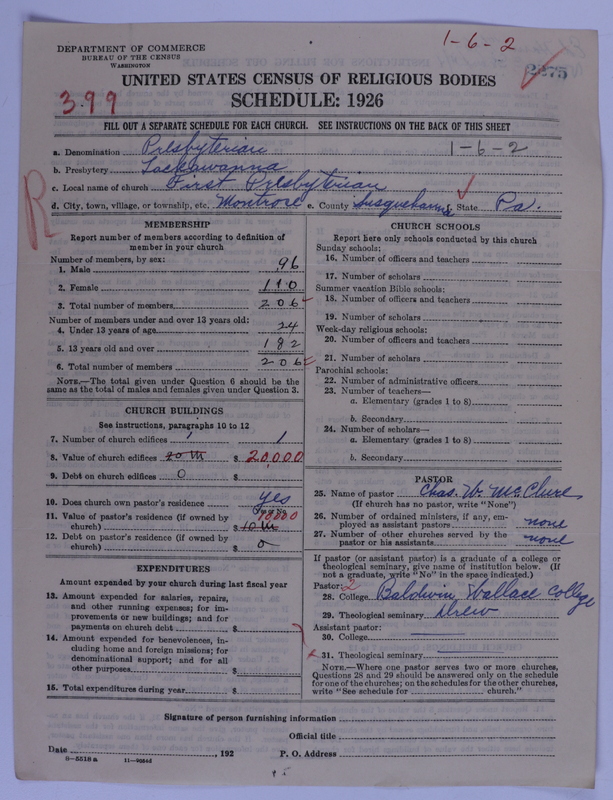 1-6-2
DEPARTMENT OF COMMERCE
BUREAU OF THE CENSUS
WASHINGTON
2275
UNITED STATES CENSUS OF RELIGIOUS BODIES
399
SCHEDULE: 1926
FILL OUT A SEPARATE SCHEDULE FOR EACH CHURCH. SEE INSTRUCTIONS ON THE BACK OF THIS SHEET
a. Denomination Presbyterian 1-6-2
b. Presbytery Lackawanna
c. Local name of church First Presbyterian
R
d. City, town, village, or township, etc. Montrose e. County Susquehanna f. State Pa.
MEMBERSHIP
Report number of members according to definition of
member in your church
Number of members, by sex:
1. Male 96
2. Female 110
3. Total number of members 206
Number of members under and over 13 years old:
4. Under 13 years of age 24
5. 13 years old and over 182
6. Total number of members 206
NOTE.—The total given under Question 6 should be the
same as the total of males and females given under Question 3.
CHURCH BUILDINGS
See instructions, paragraphs 10 to 12
7. Number of church edifices 1 1
8. Value of church edifices 20 m $ 20,000
9. Debt on church edifices 0 $
10. Does church own pastor's residence yes
11. Value of pastor's residence (if owned by
church) $ 10 m 10000
12. Debt on pastor's residence (if owned by
church) $ 0
EXPENDITURES
Amount expended by your church during last fiscal year
13. Amount expended for salaries, repairs,
and other running expenses; for im-
provements or new buildings; and for
payments on church debt $
14. Amount expended for benevolences, in-
cluding home and foreign missions; for
denominational support; and for all
other purposes $
15. Total expenditures during year $
CHURCH SCHOOLS
Report here only schools conducted by this church
Sunday schools:
16. Number of officers and teachers
17. Number of scholars
Summer vacation Bible schools:
18. Number of officers and teachers
19. Number of scholars
Week-day religious schools:
20. Number of officers and teachers
21. Number of scholars
Parochial schools:
22. Number of administrative officers
23. Number of teachers—
a. Elementary (grades 1 to 8)
b. Secondary
24. Number of scholars—
a. Elementary (grades 1 to 8)
b. Secondary
PASTOR
25. Name of pastor Chas. W. McClure
(If church has no pastor, write "None")
26. Number of ordained ministers, if any, em-
ployed as assistant pastors none
27. Number of other churches served by the
pastor or his assistants none
If pastor (or assistant pastor) is a graduate of a college or
theological seminary, give name of institution below. (If
not a graduate, write "No" in the space indicated.)
Pastor: 2
28. College Baldwin Wallace College
29. Theological seminary Drew
Assistant pastor:
30. College
31. Theological seminary
NOTE.—Where one pastor serves two or more churches,
Questions 28 and 29 should be answered only on the schedule
for one of the churches; on the schedules for the other churches,
write "See schedule for church."
Signature of person furnishing information
Official title
Date , 192 P. O. Address
8-5518 a